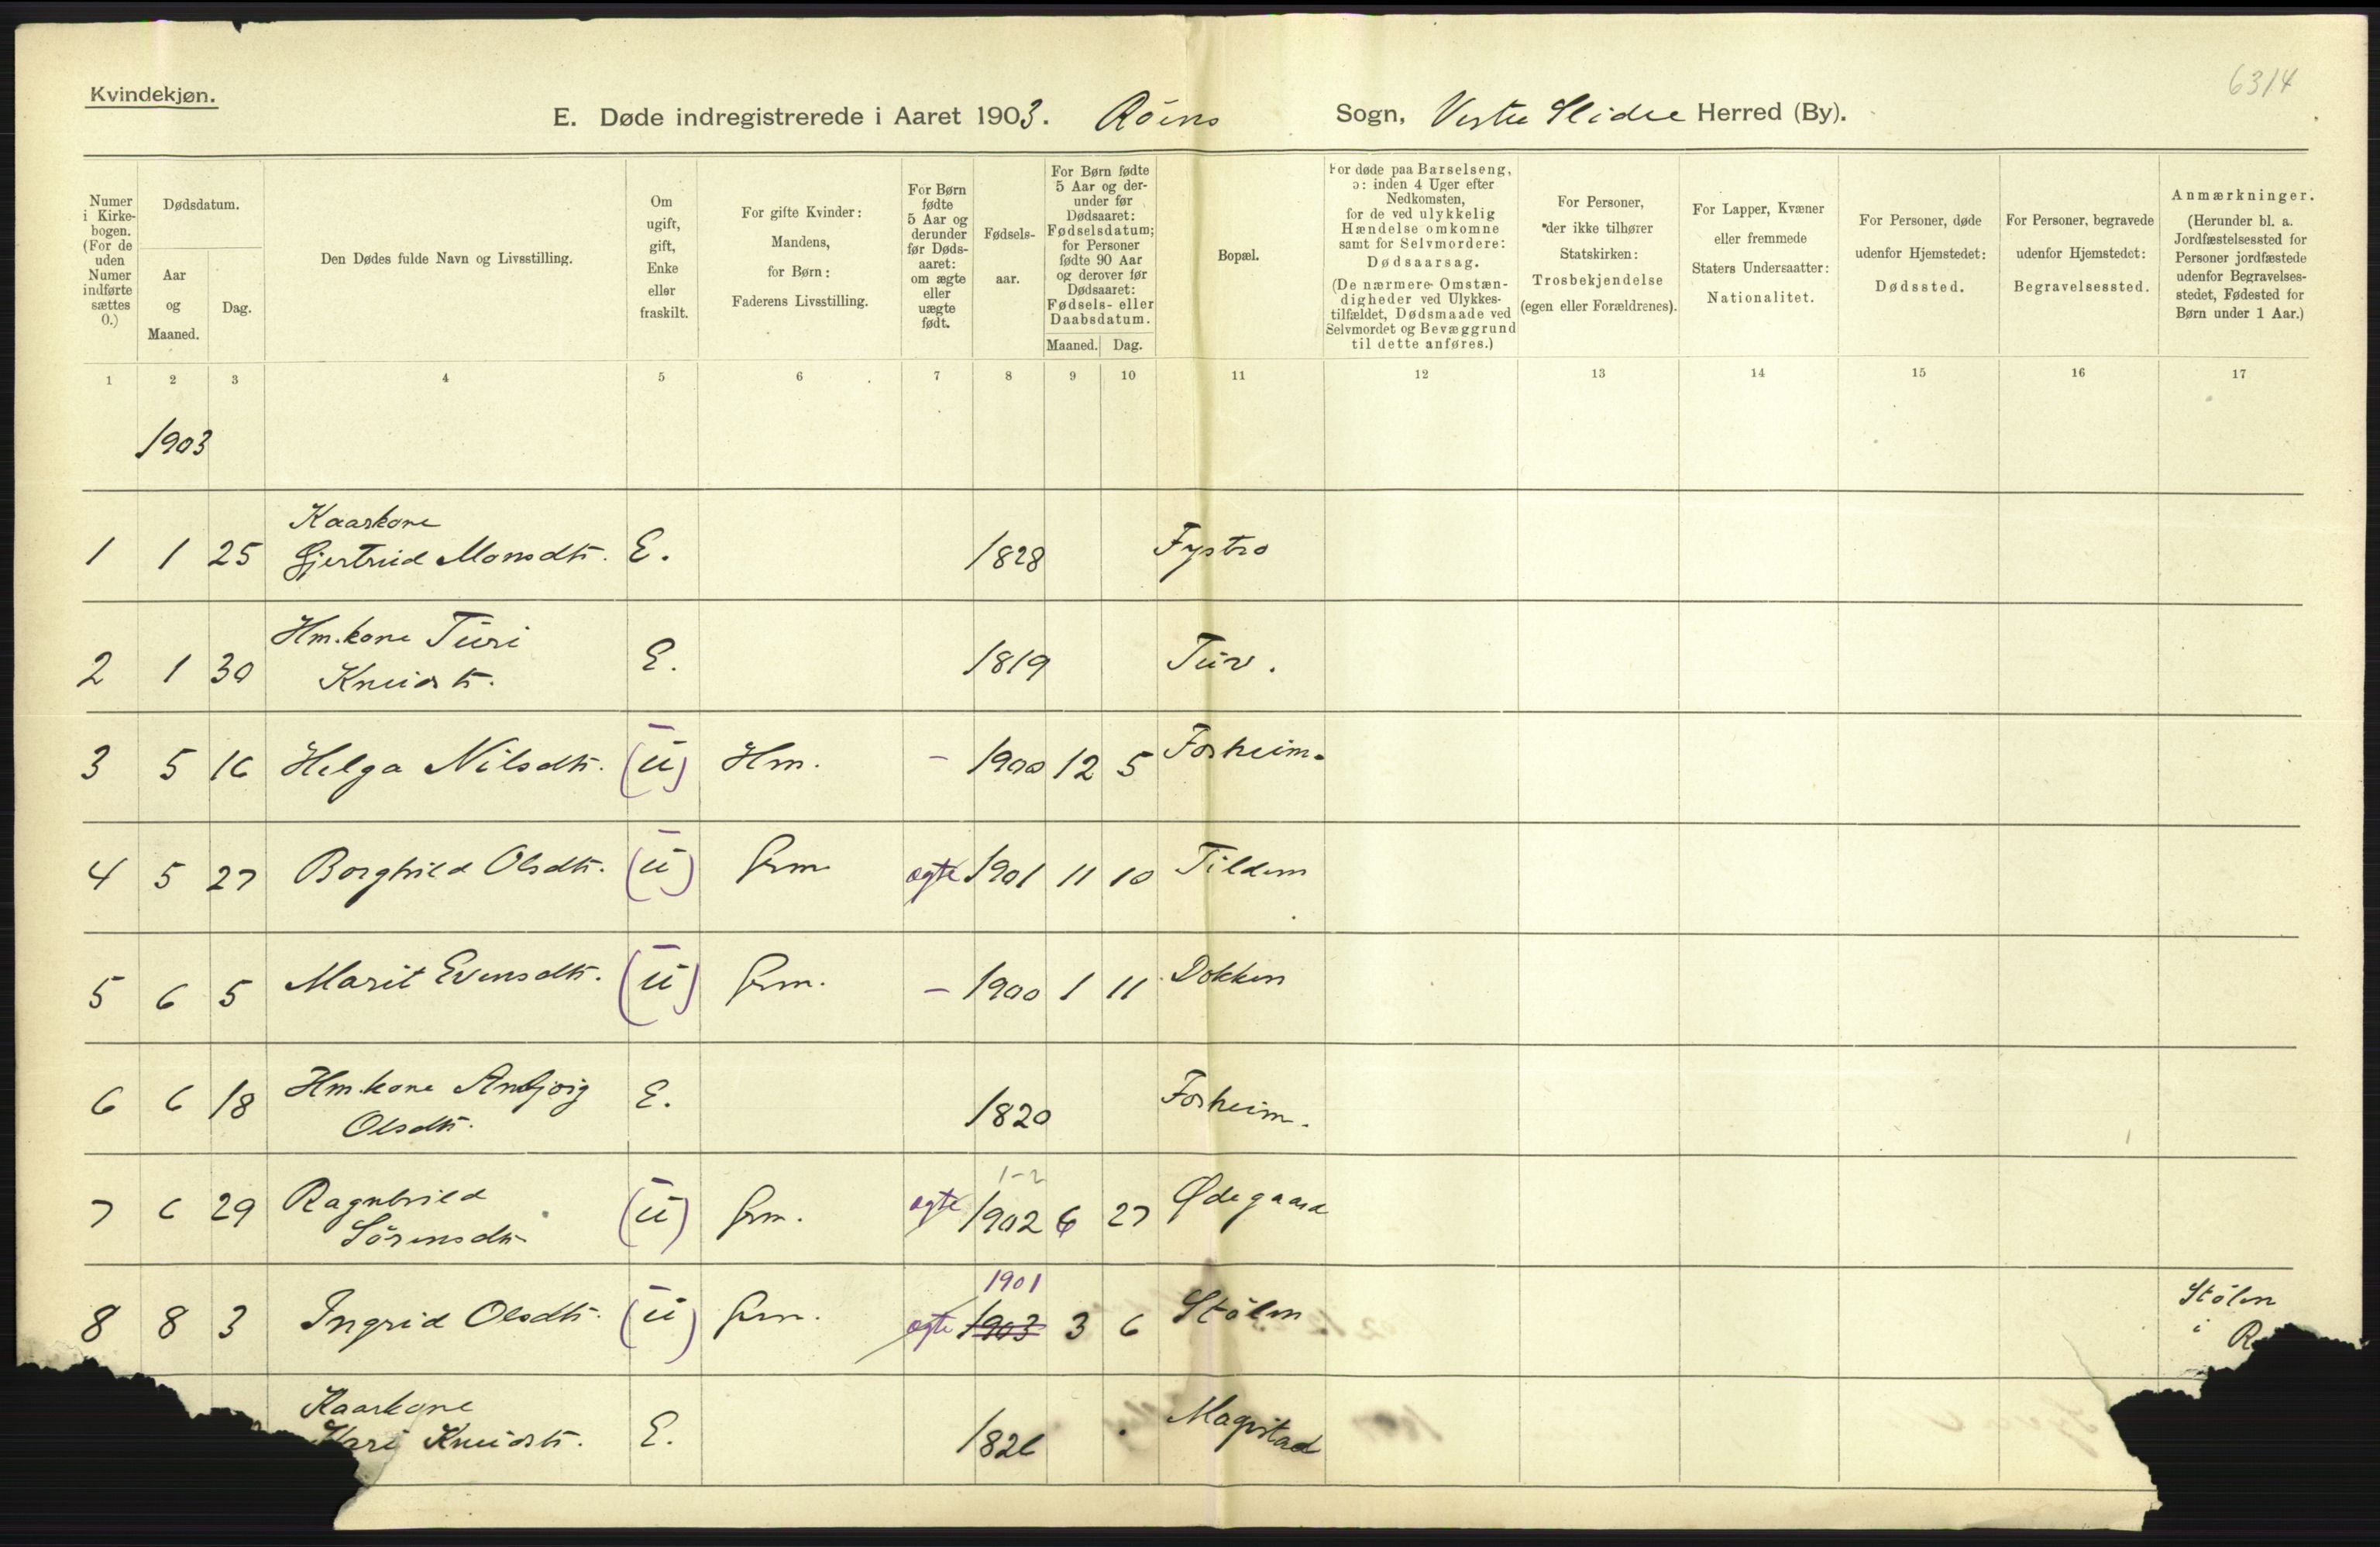 6314
Kvindekjøn.
E. Døde indregistrerede i Aaret 1903. Röins Sogn, Vestre Slidre Herred (By).
Numer i Kirke-bogen. (For de uden Numer indførte sættes 0.)
Dødsdatum.
Aar og Maaned.
Dag.
Den Dødes fulde Navn og Livsstilling.
Om ugift, gift, Enke eller fraskilt.
For gifte Kvinder: Mandens, for Børn: Faderens Livsstilling.
For Børn fødte 5 Aar og derunder før Døds-aaret: om ægte eller uægte født.
Fødsels-aar.
For Børn fødte 5 Aar og der-under før Dødsaaret: Fødselsdatum; for Personer fødte 90 Aar og derover før Dødsaaret: Fødsels- eller Daabsdatum.
Maaned. Dag.
Bopæl.
For døde paa Barselseng, ɔ: inden 4 Uger efter Nedkomsten, for de ved ulykkelig Hændelse omkomne samt for Selvmordere: Dødsaarsag. (De nærmere Omstæn-digheder ved Ulykkes-tilfældet, Dødsmaade ved Selvmordet og Bevæggrund til dette anføres.)
For Personer, der ikke tilhører Statskirken: Trosbekjendelse (egen eller Forældrenes).
For Lapper, Kvæner eller fremmede Staters Undersaatter: Nationalitet.
For Personer, døde udenfor Hjemstedet: Dødssted.
For Personer, begravede udenfor Hjemstedet: Begravelsessted.
Anmærkninger. (Herunder bl. a. Jordfæstelsessted for Personer jordfæstede udenfor Begravelses-stedet, Fødested for Børn under 1 Aar.)
1 2 3 4 5 6 7 8 9 10 11 12 13 14 15 16 17
1903
Kaarkone
1 1 25 Gjertrud Monsdtr. E. 1828 Fystro
Hm.kone Turi
2 1 30 Knudsdtr. E. 1819 Tuv.
3 5 16 Helga Nilsdtr. (u) Hm. – 1900 12 5 Forheim.
4 5 27 Borghild Olsdtr. (u) Grm. ægte 1901 11 10 Tildem
5 6 5 Marit Evensdtr. (u) Grm. – 1900 1 11 Dokken
6 6 18 Hm.kone Anbjørg E. 1820 Forheim.
Olsdtr.
1-2
7 6 29 Ragnhild (u) Grm. ægte 1902 6 27 Ødegaard
Sörensdtr
1901
8 8 3 Ingrid Olsdtr. (u) Grm. ægte 1903 3 6 Stölen Stölen
i R
Kaarkone
Kari Knudsdtr. E. 1826 Magistad